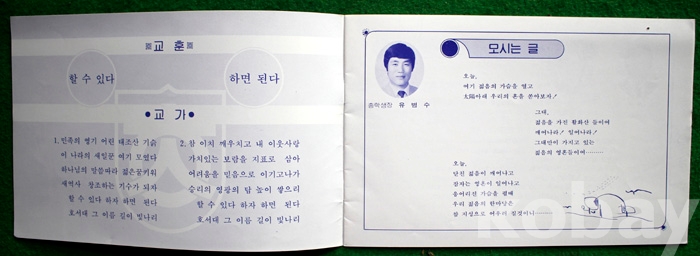 ※교 훈※
할 수 있다 하면 된다
●교 가●
1. 민족의 영기 어린 태조산 기슭
이 나라의 새일꾼 여기 모였다
하나님의 말씀따라 젊은꿈키워
새역사 창조하는 기수가 되자
할 수 있다 하자 하면 된다
호서대 그 이름 길이 빛나리
2. 참 이치 깨우치고 내 이웃사랑
가치있는 보람을 지표로 삼아
어려움을 믿음으로 이기고나가
승리의 영광의 탑 높이 쌓으리
할 수 있다 하자 하면 된다
호서대 그 이름 길이 빛나리
모시는 글
총학생장 유병수
오늘,
여기 젊음의 가슴을 열고
太陽아래 우리의 혼을 쏟아보자!
그대,
젊음을 가진 활화산 들이여
깨어나라! 일어나라!
그대만이 가지고 있는
젊음의 영혼들이여………
오늘,
닫힌 젊음이 깨어나고
잠자는 영혼이 일어나고
응어리진 가슴을 펼쳐
우리 젊음의 한마당은
kobay